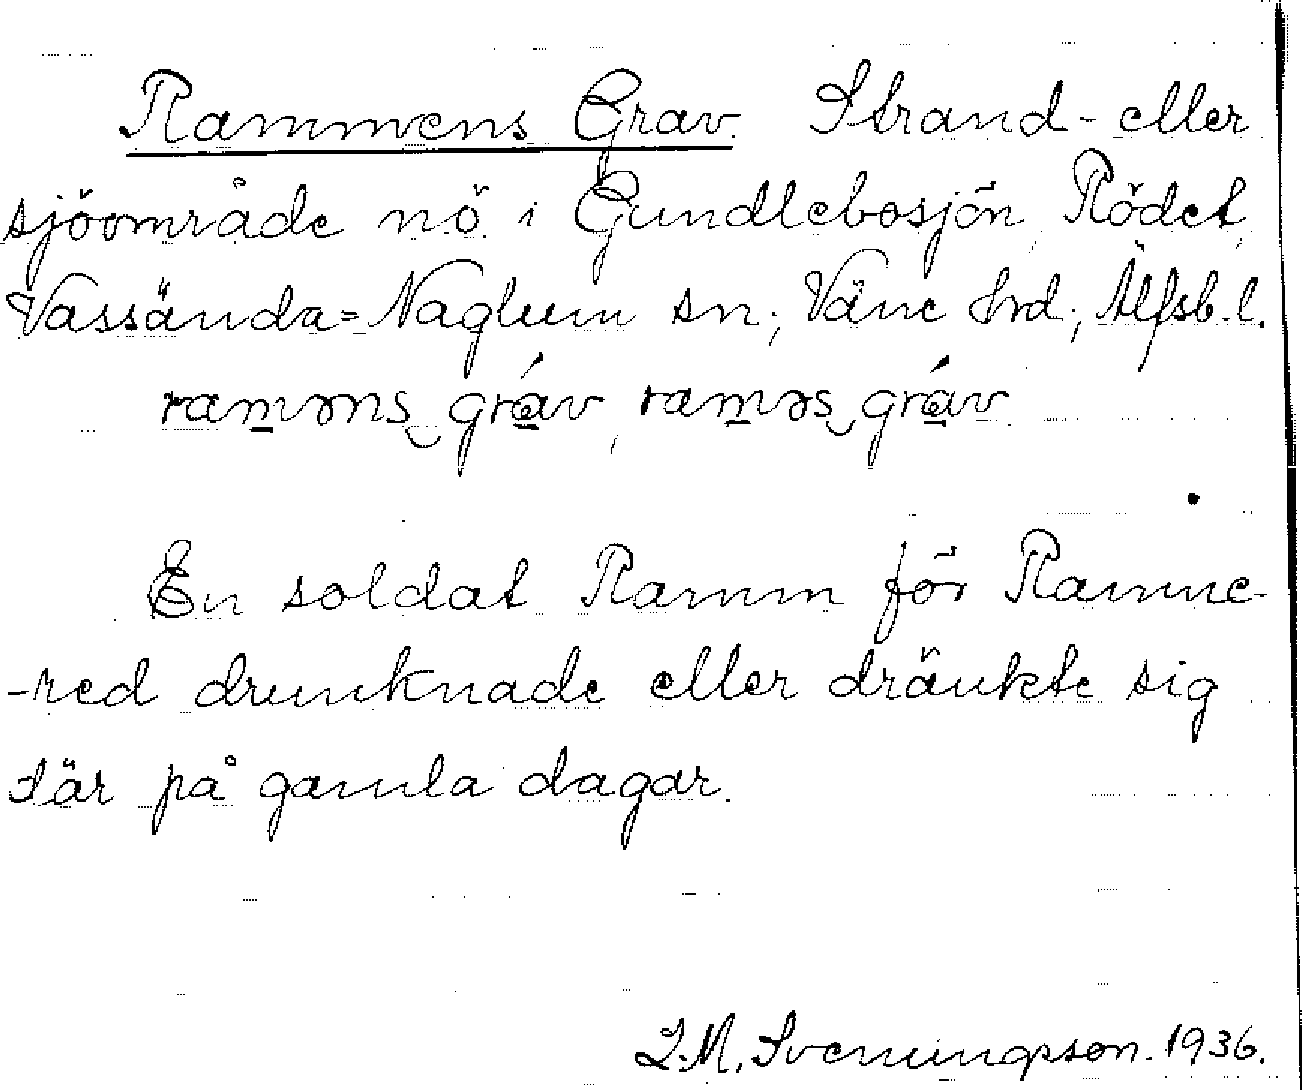 Rammens Grav. Strand- eller
sjöområde nö. i Gundlebosjön, Rödet,
Vassända-Naglum sn; Väne hrd; Älfsb. l.
raməns‿gráv, raməs‿gráv.
En soldat Ramm för Ramne-
-red drunknade eller dränkte sig
där på gamla dagar.
J.M. Svenningsson. 1936.